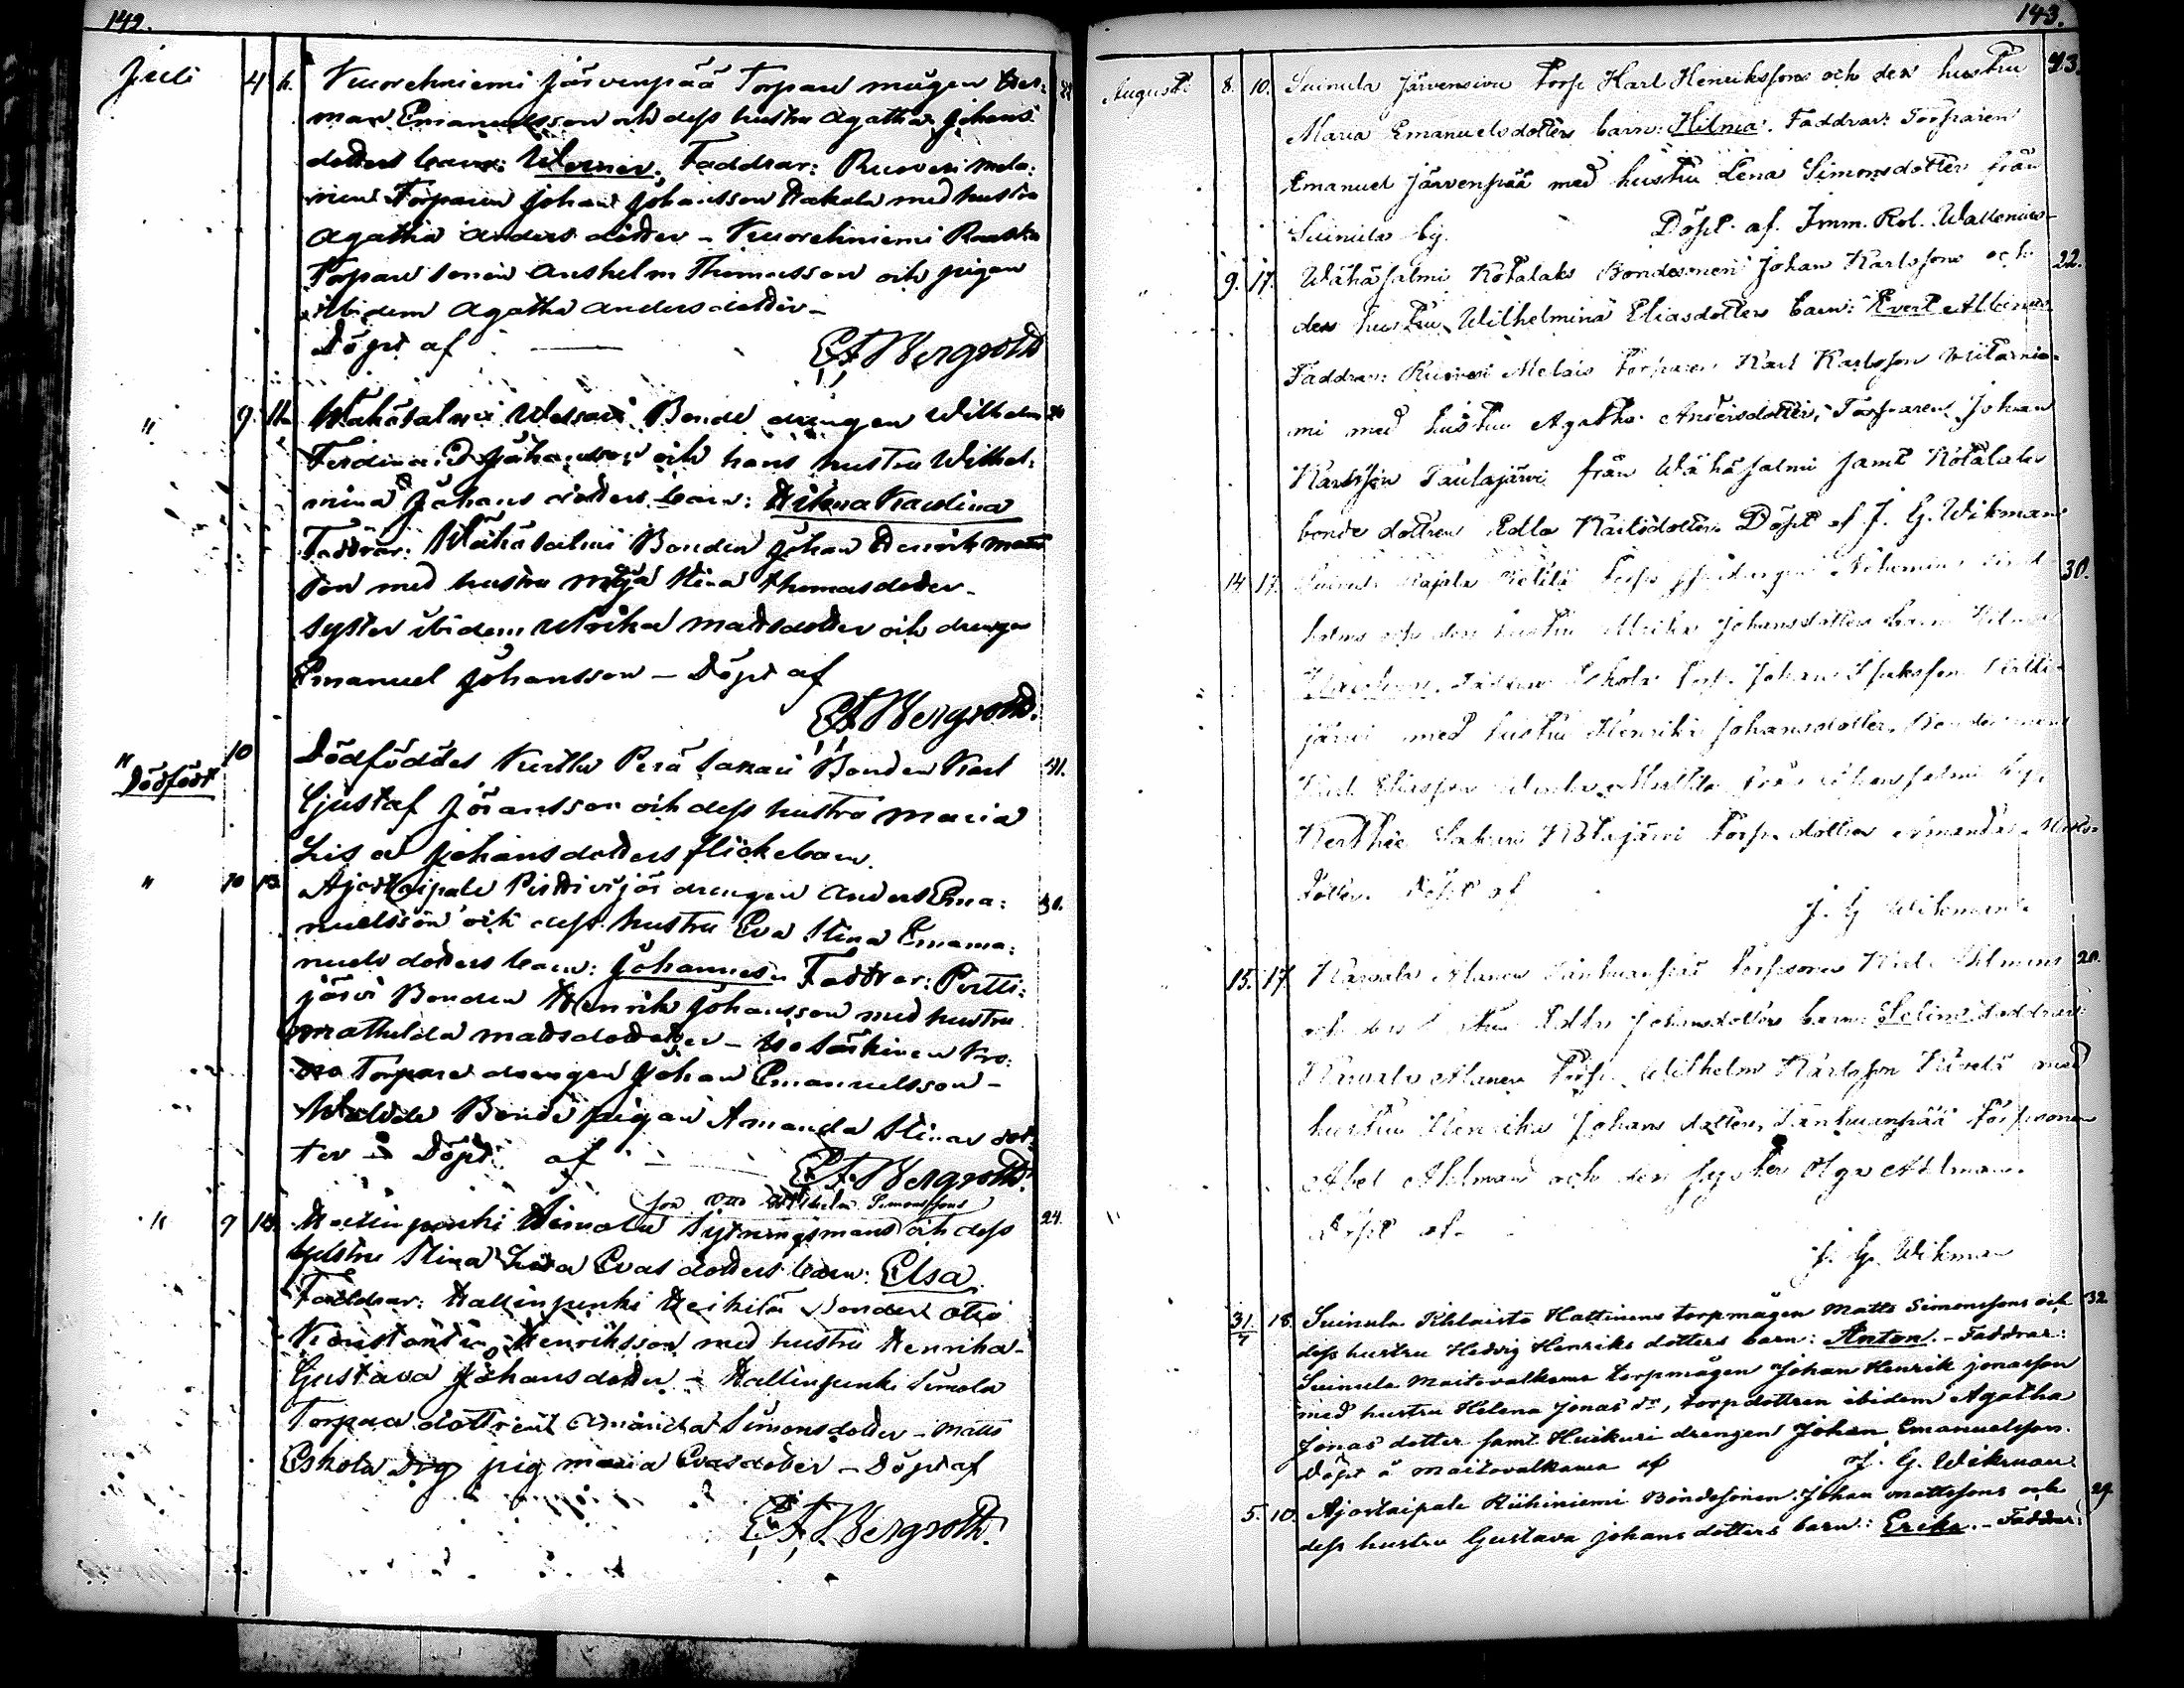 142.
Juli 4 6. Kuorehniemi Järvenpää Torpare mågen Her:
man Emanuelsson och dess hustru Agatha Johans
dotters barn: Werner. Faddrar: Ruoveri Mela:
nien Torparen Johan Johansson Hakala med hustru
Agatha Anders dotter – Kuorehniemi
Torpare sonen Anshelm Thomasson och pigan
ibidem Agatha Andersdotter –
Döpt af EA Bergroth
" 9. 11. Wähäsalmi Bonde drengen Wilhelm
Ferdinand Johansson och hans hustru Wilhel:
mina Johans dotters barn: Hilma Karolina
Faddrar: Wähäsalmi Bonden Johan Henrik Matts
son med hustru Maja Stina Thomasdotter –
syster ibidem Ulrika Mattsdotter och drengen
Emanuel Johansson – Döpt af
EA Bergroth.
" 10 Dödföddes Kurttu Perä Sakari Bonden Karl 41.
Dödfödt
Gustaf Göransson och dess hustru Maria
Lisa Johansdotters flickebarn.
" 10 13. Ajostaipale Pirttijärvi drengen Anders Ema: 30.
nuelsson och dess hustru Eva Stina Emanu:
nuels dotters barn: Johannes. Faddrar: Pirtti:
järvi Bonden Henrik Johansson med hustru
Mathilda Mattsdotter – Iso Särkinen Kro:
no Torpare drengen Johan Emanuelsson –
Bonde pigan Amanda Stinas dot
ter – Döpt af EA Bergroth.
son Otto Wilhelm Simonssons
" 9 13. Hallinpenki Simola Sytningsmans och dess 24.
hustru Stina Lisa Evas dotters barn: Elsa.
Faddrar: Hallinpenki Heikilä Bonden Otto
Konstantin Henriksson med hustru Henrika
Gustava Johansdotter – Hallinpenki Simola
Torpare dottren Amanda Simonsdotter – Matts
Eskola pig Maria Evasdotter – Döpt af
EA Bergroth.
143.
Augusti 8. 10. Suinula Järvensivu Torp Karl Henrikssons och des hustru 23.
Maria Emanuelsdotters barn: Hilma. Faddrar: Torparen
Emanuel Järvenpää med hustru Lena Simonsdotter från
Suinula by. Döpt af Imm. Rob. Wallenius
" 9. 17. Wähäsalmi Kotalaks Bondesonen Johan Karlssons och 22.
des hustru Wilhelmina Eliasdotters barn: Evert Albinus
Faddrar: Ruoveri Melais Torparen Karl Karlsson
mi med hustru Agatha Andersdotter, Torparen Johan
Karlsson Taulajärvi från Wähäsalmi samt Kotalaks
bonde dottren Edla Karlsdotter. Döpt af J. G. Wikman
14 17. Suinula Rajala Torp 30.
holms och des hustru Ulrika Johansdotters barn Hilma
Faddrar Eskola Torp. Johan Isaksson
järvi med hustru Henrika Johansdotter, Bondesonen
Karl Eliasson från Wähäsalmi by,
Sakari Kotajärvi Torp. dottren Amanda
dotter. Döpt af
J. G. Wikman.
15. 17 Karvala Alanen Tanhuanpää torpsonen Karl Ahlmans 20.
och des hustru Edla Johansdotters barn: Selim. Faddrar:
Karvala Alanen Torp. Wilhelm Karlsson med
hustru Henrika Johans dotter, Tanhuanpää Torpsonen
Abel Ahlman och des syster Olga Ahlman.
" Döpt af
J. G. Wikman
31/7 18. Suinula Kihlaisto Hattinens torpmågen Matts Simonssons och 32
dess hustru Hedvig Henriks dotters barn: Anton. – Faddrar:
Suinula Maitovalkama torpmågen Johan Henrik Jonasson
med hustru Helena Jonas dr, torpdottren ibidem Agatha
Jonas dotter samt Huikuri drengen Johan Emanuelsson.
Döpt å Maitovalkama af J. G. Wikman.
5. 10. Ajostaipale Riihiniemi Bondesonen Johan Mattssons och 29.
dess hustru Gustava Johans dotters barn: Erika. – Faddrar: